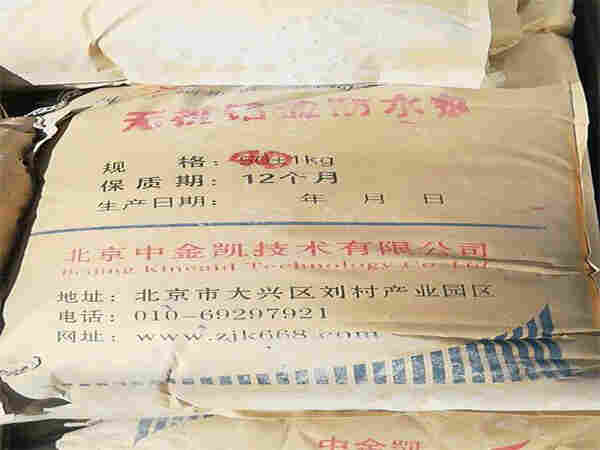 无机铝盐防水剂
规 格: 50±1kg
保质期: 12个月
生产日期: 年 月 日
北京中金凯技术有限公司
Beijing Kingaid Technology Co Ltd
地址: 北京市大兴区刘村产业园区
电话: 010-69297921
网址: www.zjk668.com
中金凯